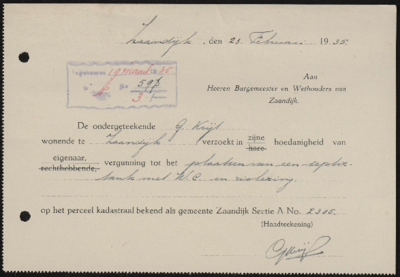 Zaandijk, den 23 Februari 1935.
Ingekomen 19 Maart 1935
No 593
3
Aan
Heeren Burgemeester en Wethouders van
Zaandijk.
De ondergeteekende G. Kuijt
wonende te Zaandijk verzoekt in zijne hare hoedanigheid van
eigenaar, rechthebbende, vergunning tot het plaatsen van een septic
tank met W.C. en riolering
op het perceel kadastraal bekend als gemeente Zaandijk Sectie A No. 2305.
(Handteekening)